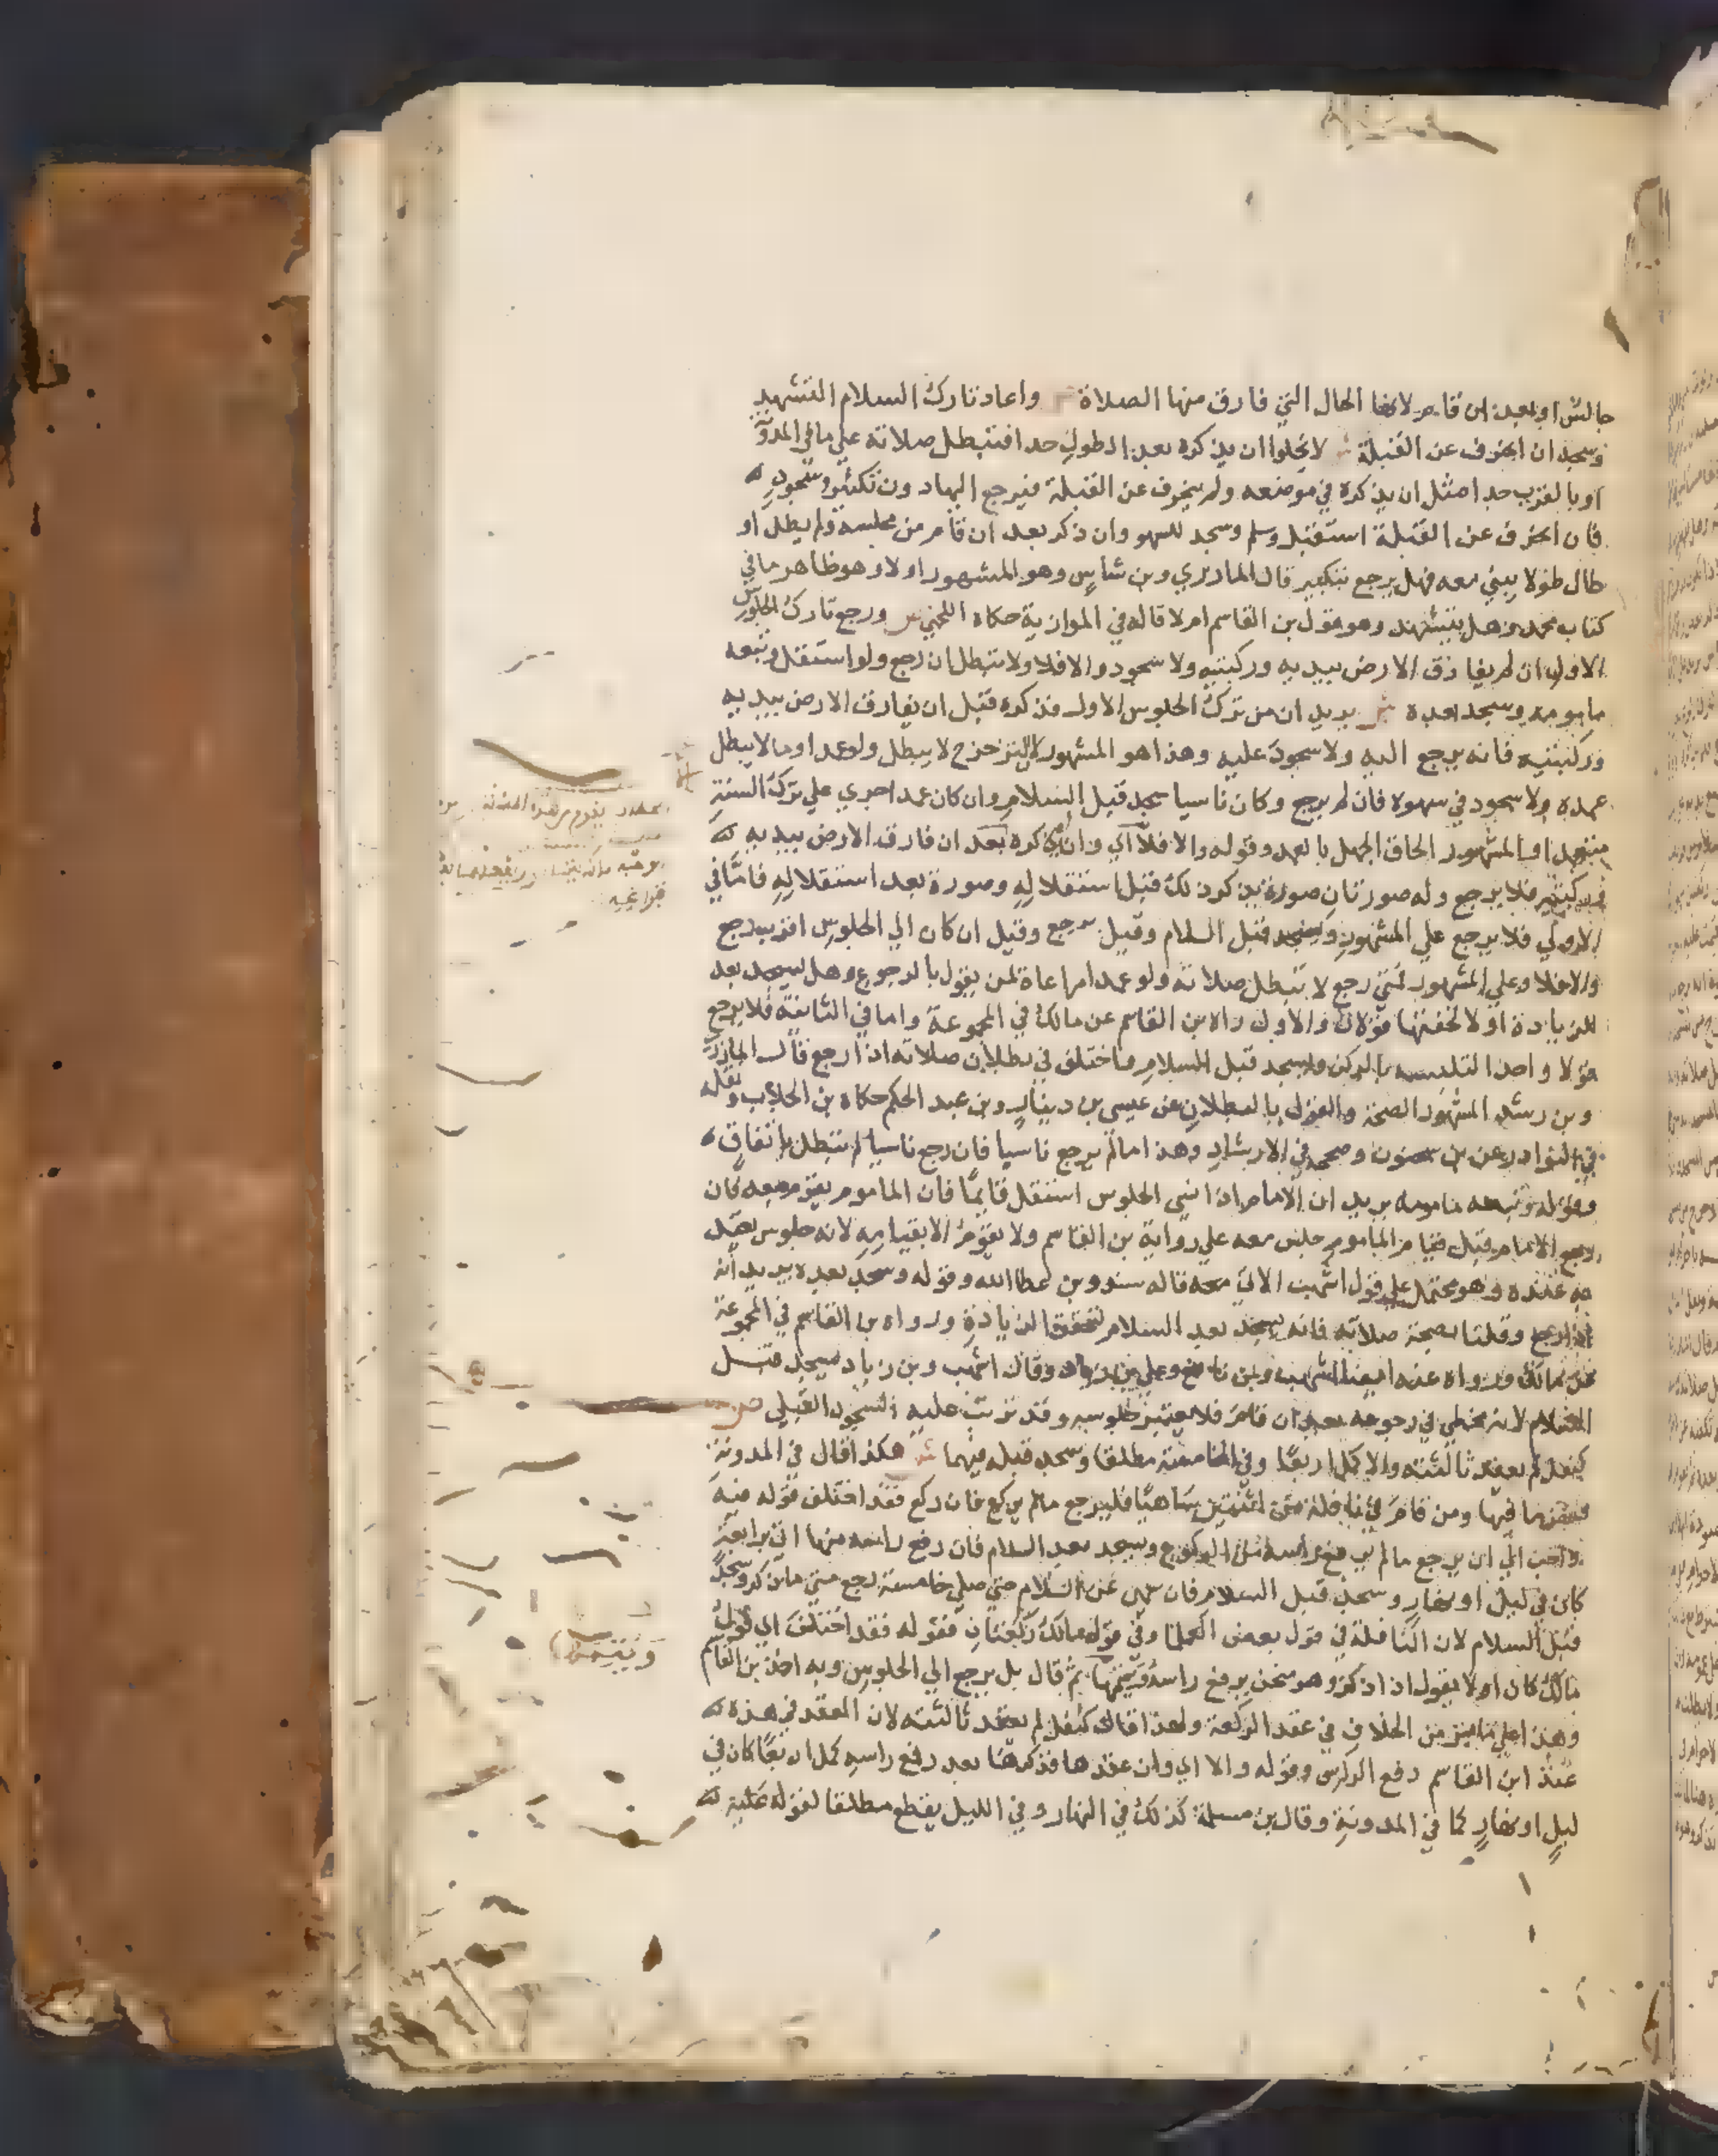 جالس او بعد ان قام لانها الحال التي فارق منها الصلاة واعاد تارك السلام التشهد
وسجد ان انحرف عن القبلة ش لا يخلوا ان يذكره بعد الطول جدا فتبطل صلاته علي ما في المدونة
او بالقرب جدا مثل ان يذكره في موضعه ولم ينحرف عن القبلة فيرجع اليها دون تكبير وسجود
فان انحرف عن القبلة استقبل وسلم وسجد للسهو وان ذكر بعد ان قام من مجلسه ولم يطل او
طال طولا يبني معه فهل يرجع بتكبير قال المازري وبن شاس وهو المشهور اولا وهو ظاهر ما في
كتاب محمد وهل يتشهد وهو قول بن القاسم ام لا قاله في الموازية حكاه اللخمي ص ورجع تارك الجلوس
الاول ان لم يفارق الارض بيديه وركبتيه ولا سجود والا فلا ولا تبطل ان رجع ولو استقل وتبعه
مامومه وسجد بعده ش يريد ان من ترك الجلوس الاول فذكره قبل ان يفارق الارض بيديه
وركبتيه فانه يرجع اليه ولا سجود عليه وهذا هو المشهور لان التزحزح لا يبطل ولو عمد اوما لا يبطل
عمده ولا سجود في سهوه فان لم يرجع وكان ناسيا سجد قبل السلام وان كان عمدا جري علي ترك السنة
متعمدا والمشهور الحاق الجهل بالعمد وقوله والا فلا اي وان ذكره بعد ان فارق الارض بيديه
وركبتيه فلا يرجع وله صورتان صورة يذكر ذلك قبل استقلاله وصورة بعد استقلاله فاما في
الاولي فلا يرجع علي المشهور وسجد قبل السلام وقيل يرجع وقيل ان كان الي الجلوس اقرب رجع
والا فلا وعلي المشهور فمتي رجع لا تبطل صلاته ولو عمدا مراعاة لمن يقول بالرجوع وهل يسجد بعد
للزيادة اولا لخفتها قولان والاول رواه بن القاسم عن مالك في المجموعة واما في الثانية فلا يرجع
قولا واحدا لتلبسه بالركن وليسجد قبل السلام واختلف في بطلان صلاته اذا رجع قال المازري
وبن رشد المشهور الصحة والقول بالبطلان عن عيسي بن دينار وبن عبد الحكم حكاه بن الجلاب ونقله
في النوادر عن بن سحنون وصححه في الارشاد وهذا ما لم يرجع ناسيا فان رجع ناسيا لم تبطل باتفاق
وقوله وتبعه مامومه يريد ان الامام اذا نسي الجلوس استقل قايما فان الماموم يقوم معه فان
رجع الامام قبل قيام الماموم جلس معه علي رواية بن القاسم ولا يقوم الا بقيامه لانه جلوس يعتد
به عنده وهو محتمل علي قول اشهب الاتي معه قاله سند وبن عطا الله وقوله وسجد بعده يريد انه
اذا رجع وقلنا بصحة صلاته فانه يسجد بعد السلام لتحقق الزيادة ورواه بن القاسم في المجموعة
عن مالك ورواه عنه ايضا اشهب وبن نافع وعلي بن زياد وقال اشهب وبن زياد يسجد قبل
السلام لانه مخطي في رجوعه بعد ان قام فلا يعتبر جلوسه وقد ترتب عليه السجود القبلي ص
كنفل لم يعقد ثالثته والا كمل اربعا وفي الخامسة مطلقا وسجد قبله فيهما ش هكذا قال في المدونة
فيها ومن قام في نافلة من اثنتين ساهيا فليرجع ما لم يركع فان ركع فقد اختلف قوله فيه
واحب الي ان يرجع ما لم يرفع راسه من الركوع ويسجد بعد السلام فان رفع راسه منها اتي برابعة
كان في ليل او نهار وسجد قبل السلام فان سهي عن السلام حتي صلي خامسة رجع متي ما ذكر وسجد
قبل السلام لان النافلة في قول بعض العلما وفي قول مالك ركعتان فقوله فقد اختلف اي قول
مالك كان اولا يقول اذا ذكر وهو منحن يرفع راسه ويتمها ثم قال بل يرجع الي الجلوس وبه اخذ بن القاسم
وهذا علي ما بين من الخلاف في عقد الركعة ولهذا قال كنفل لم يعقد ثالثته لان العقد في هذه
عند ابن القاسم رفع الراس وقوله والا اي وان عقدها فذكر هنا بعد رفع راسه كمل اربعا كان في
ليل او نهار كما في المدونة وقال بن مسلمة كذلك في النهار وفي الليل يقطع مطلقا لقوله عليه